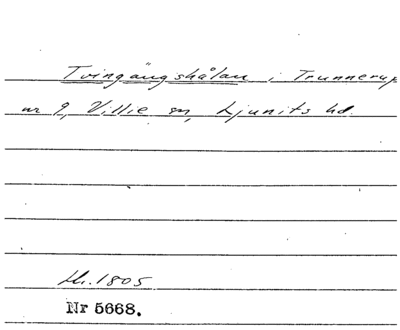 Tvingängshålan i Trunnerup
nr 9, Villie sn, Ljunits hd.
kh. 1805
Nr 5668.